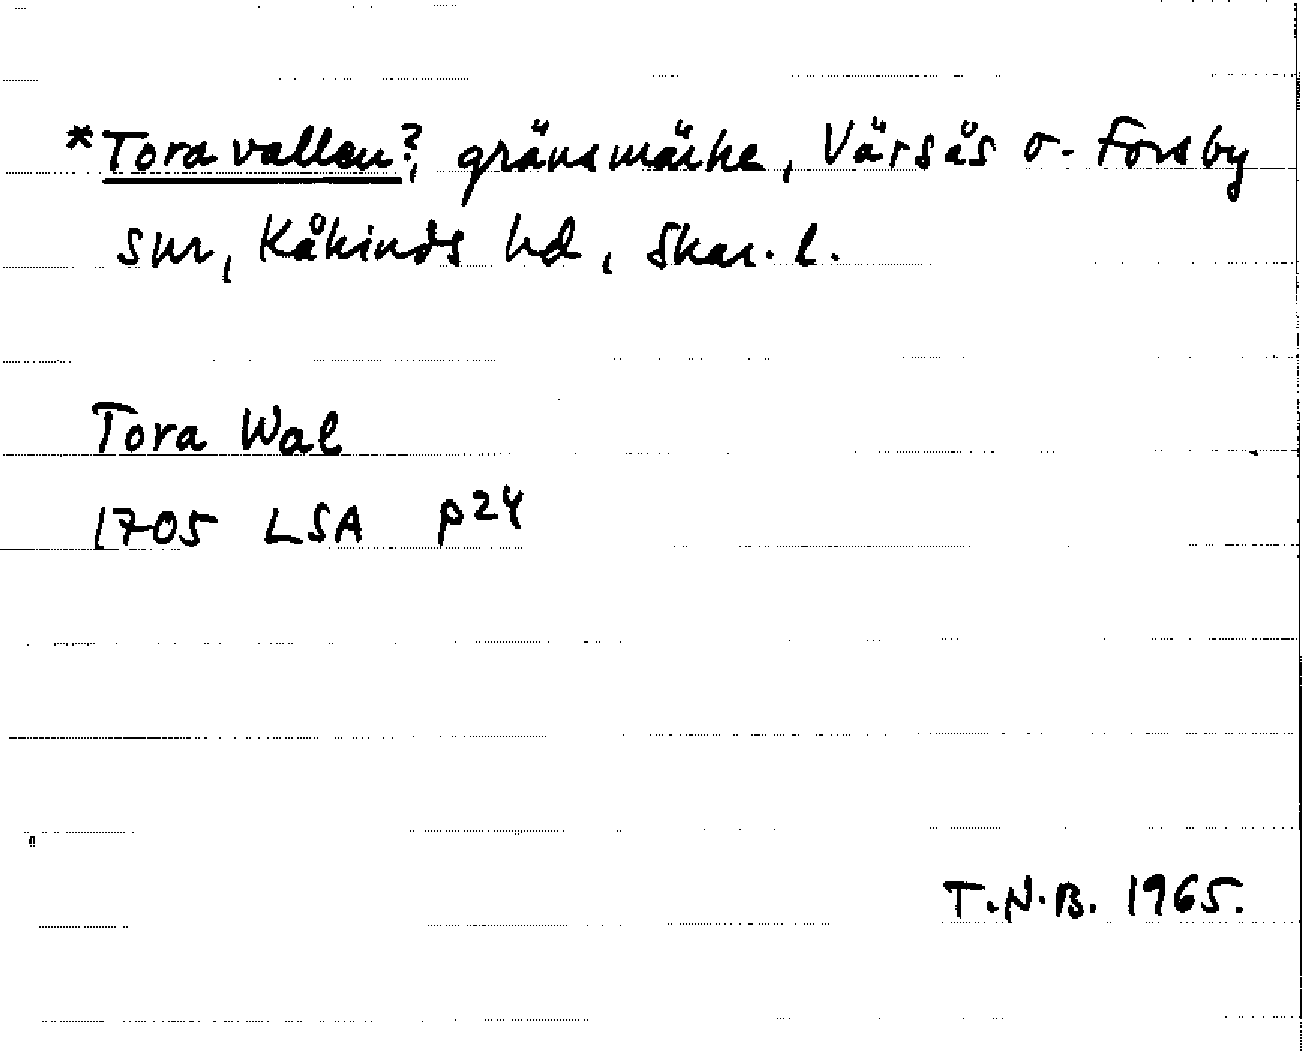 *Toravallen?, gränsmärke, Värsås o. Forsby
snr, Kåkinds hd, Skar. l.
Tora Wal
1705 LSA p24
T.N.B. 1965.